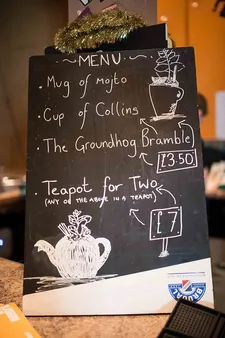 ~ MENU ~
• Mug of mojto
• Cup of Collins
• The Groundhog Bramble
£3.50
• Teapot for Two
(ANY OF THE ABOVE IN A TEAPOT)
£7